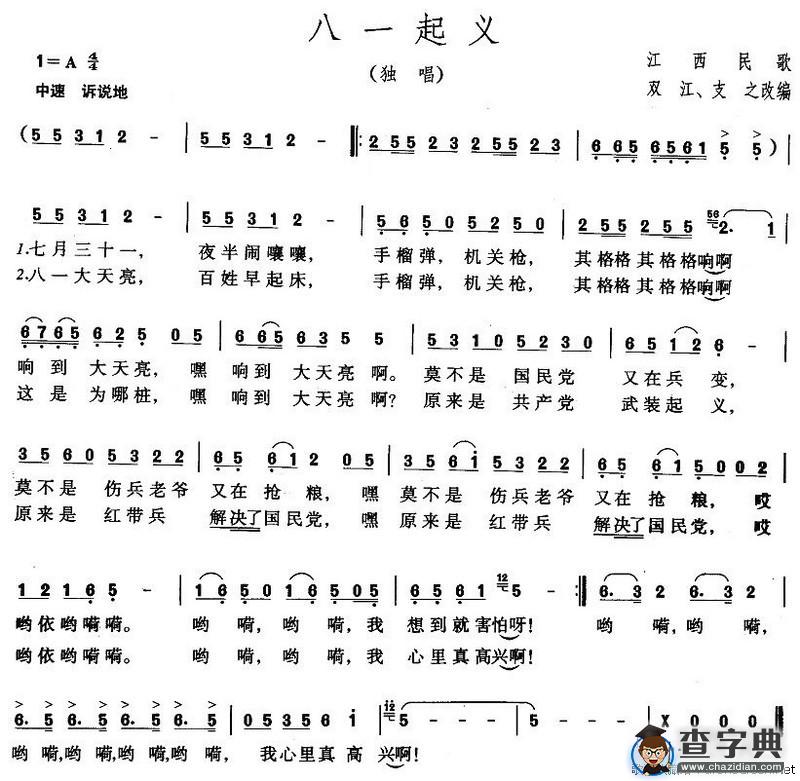 八一起义
1=A 4/4
(独 唱)
江 西 民 歌
中速 诉说地
双 江、支 之改编
(5 5 3 1 2 - | 5 5 3 1 2 - |: 2 5 5 2 5 5 2 3 2 5 5 2 3 | 6 6 5 6 5 6 1 5 5 )|
5 5 3 1 2 - | 5 5 3 1 2 - | 5 6 5 0 5 2 5 0 | 2 5 5 2 5 5 56 2. 1 |
1.七月三十一， 夜半闹嚷嚷， 手榴弹，机关枪， 其格格其格格响啊
2.八一大天亮， 百姓早起床， 手榴弹，机关枪， 其格格其格格响啊
6 7 6 5 6 2 5 0 5 | 6 6 5 6 2 5 5 | 5 3 1 0 5 2 3 0 | 6 5 1 2 6 - |
响到大天亮，嘿 响到大天亮啊。莫不是 国民党 又在兵 变，
这是为哪桩，嘿 响到大天亮啊？原来是 共产党 武装起 义，
3 5 6 0 5 3 2 2 | 6 5 6 1 2 0 5 | 3 5 6 i 5 3 2 2 | 6 5 6 1 5 0 0 2 |
莫不是 伤兵老爷 又在抢粮，嘿 莫不是 伤兵老爷 又在抢 粮， 哎
原来是 红带兵 解决了国民党，嘿 原来是 红带兵 解决了国民党， 哎
1 2 1 6 5 - | 1 6 5 0 1 6 5 0 5 | 6 5 6 1 12 5 - :| 6. 3 2 6. 3 2 |
哟依哟嗬嗬。 哟 嗬，哟 嗬，我 想到就害怕呀！ 哟 嗬，哟 嗬，
哟依哟嗬嗬。 哟 嗬，哟 嗬，我 心里真高兴啊！
6. 5 6. 5 6. 5 6. 5 | 0 5 3 5 6 i | i2 5 - | 5 - - - | X 0 0 0 |
哟 嗬,哟 嗬,哟 嗬,哟 嗬， 我心里真高 兴啊！
查字典
www.chazidian.com